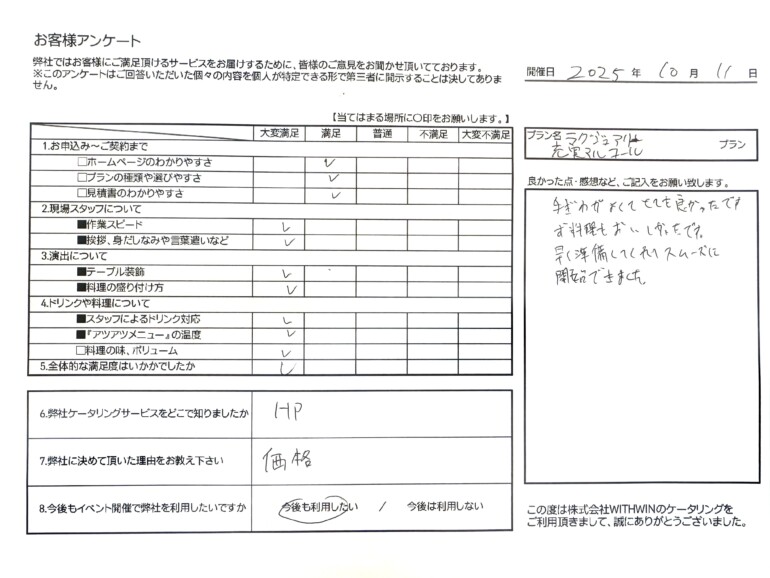 お客様アンケート
弊社ではお客様にご満足頂けるサービスをお届けするために、皆様のご意見をお聞かせ頂いております。
※このアンケートはご回答いただいた個々の内容を個人が特定できる形で第三者に開示することは決してありま
せん。
開催日 2025 年 10 月 11 日
【当てはまる場所に〇印をお願いします。】
大変満足 満足 普通 不満足 大変不満足
1.お申込み～ご契約まで
□ホームページのわかりやすさ ✓
□プランの種類や選びやすさ ✓
□見積書のわかりやすさ ✓
2.現場スタッフについて
■作業スピード ✓
■挨拶、身だしなみや言葉遣いなど ✓
3.演出について
■テーブル装飾 ✓
■料理の盛り付け方 ✓
4.ドリンクや料理について
■スタッフによるドリンク対応 ✓
■『アツアツメニュー』の温度 ✓
□料理の味、ボリューム ✓
5.全体的な満足度はいかがでしたか ✓
プラン名 ラグジュアリー
充実アルコール プラン
良かった点・感想など、ご記入をお願い致します。
手ぎわがよくてとても良かったです
お料理もおいしかったです。
早く準備してくれてスムーズに
開始できました。
6.弊社ケータリングサービスをどこで知りましたか HP
7.弊社に決めて頂いた理由をお教え下さい 価格
8.今後もイベント開催で弊社を利用したいですか 今後も利用したい / 今後は利用しない
この度は株式会社WITHWINのケータリングを
ご利用頂きまして、誠にありがとうございました。